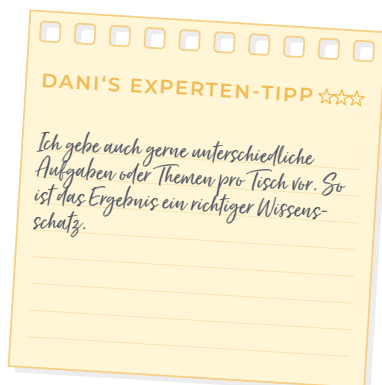 DANI'S EXPERTEN-TIPP
Ich gebe auch gerne unterschiedliche
Aufgaben oder Themen pro Tisch vor. So
ist das Ergebnis ein richtiger Wissens-
schatz.